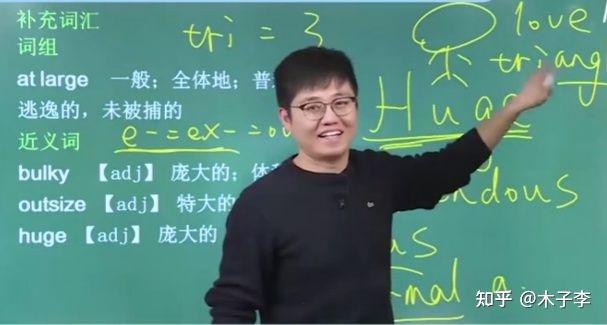 补充词汇
词组
at large 一般；全体地；普
逃逸的，未被捕的
近义词
bulky 【adj】 庞大的；体
outsize 【adj】 特大的
huge 【adj】 庞大的
tri = 3
e- = ex- = ou
love
triang
Hu
ndous
us
mal a.
知乎 @木子李